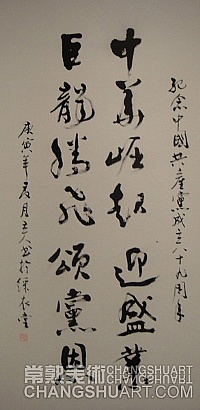 纪念中國共產黨成立八十九周年
中华崛起迎盛業
巨龍騰飛頌黨恩
庚寅年夏月立人书於保和堂
常郭美術
CHANGSHUART.COM
CHANGSHUART.COM